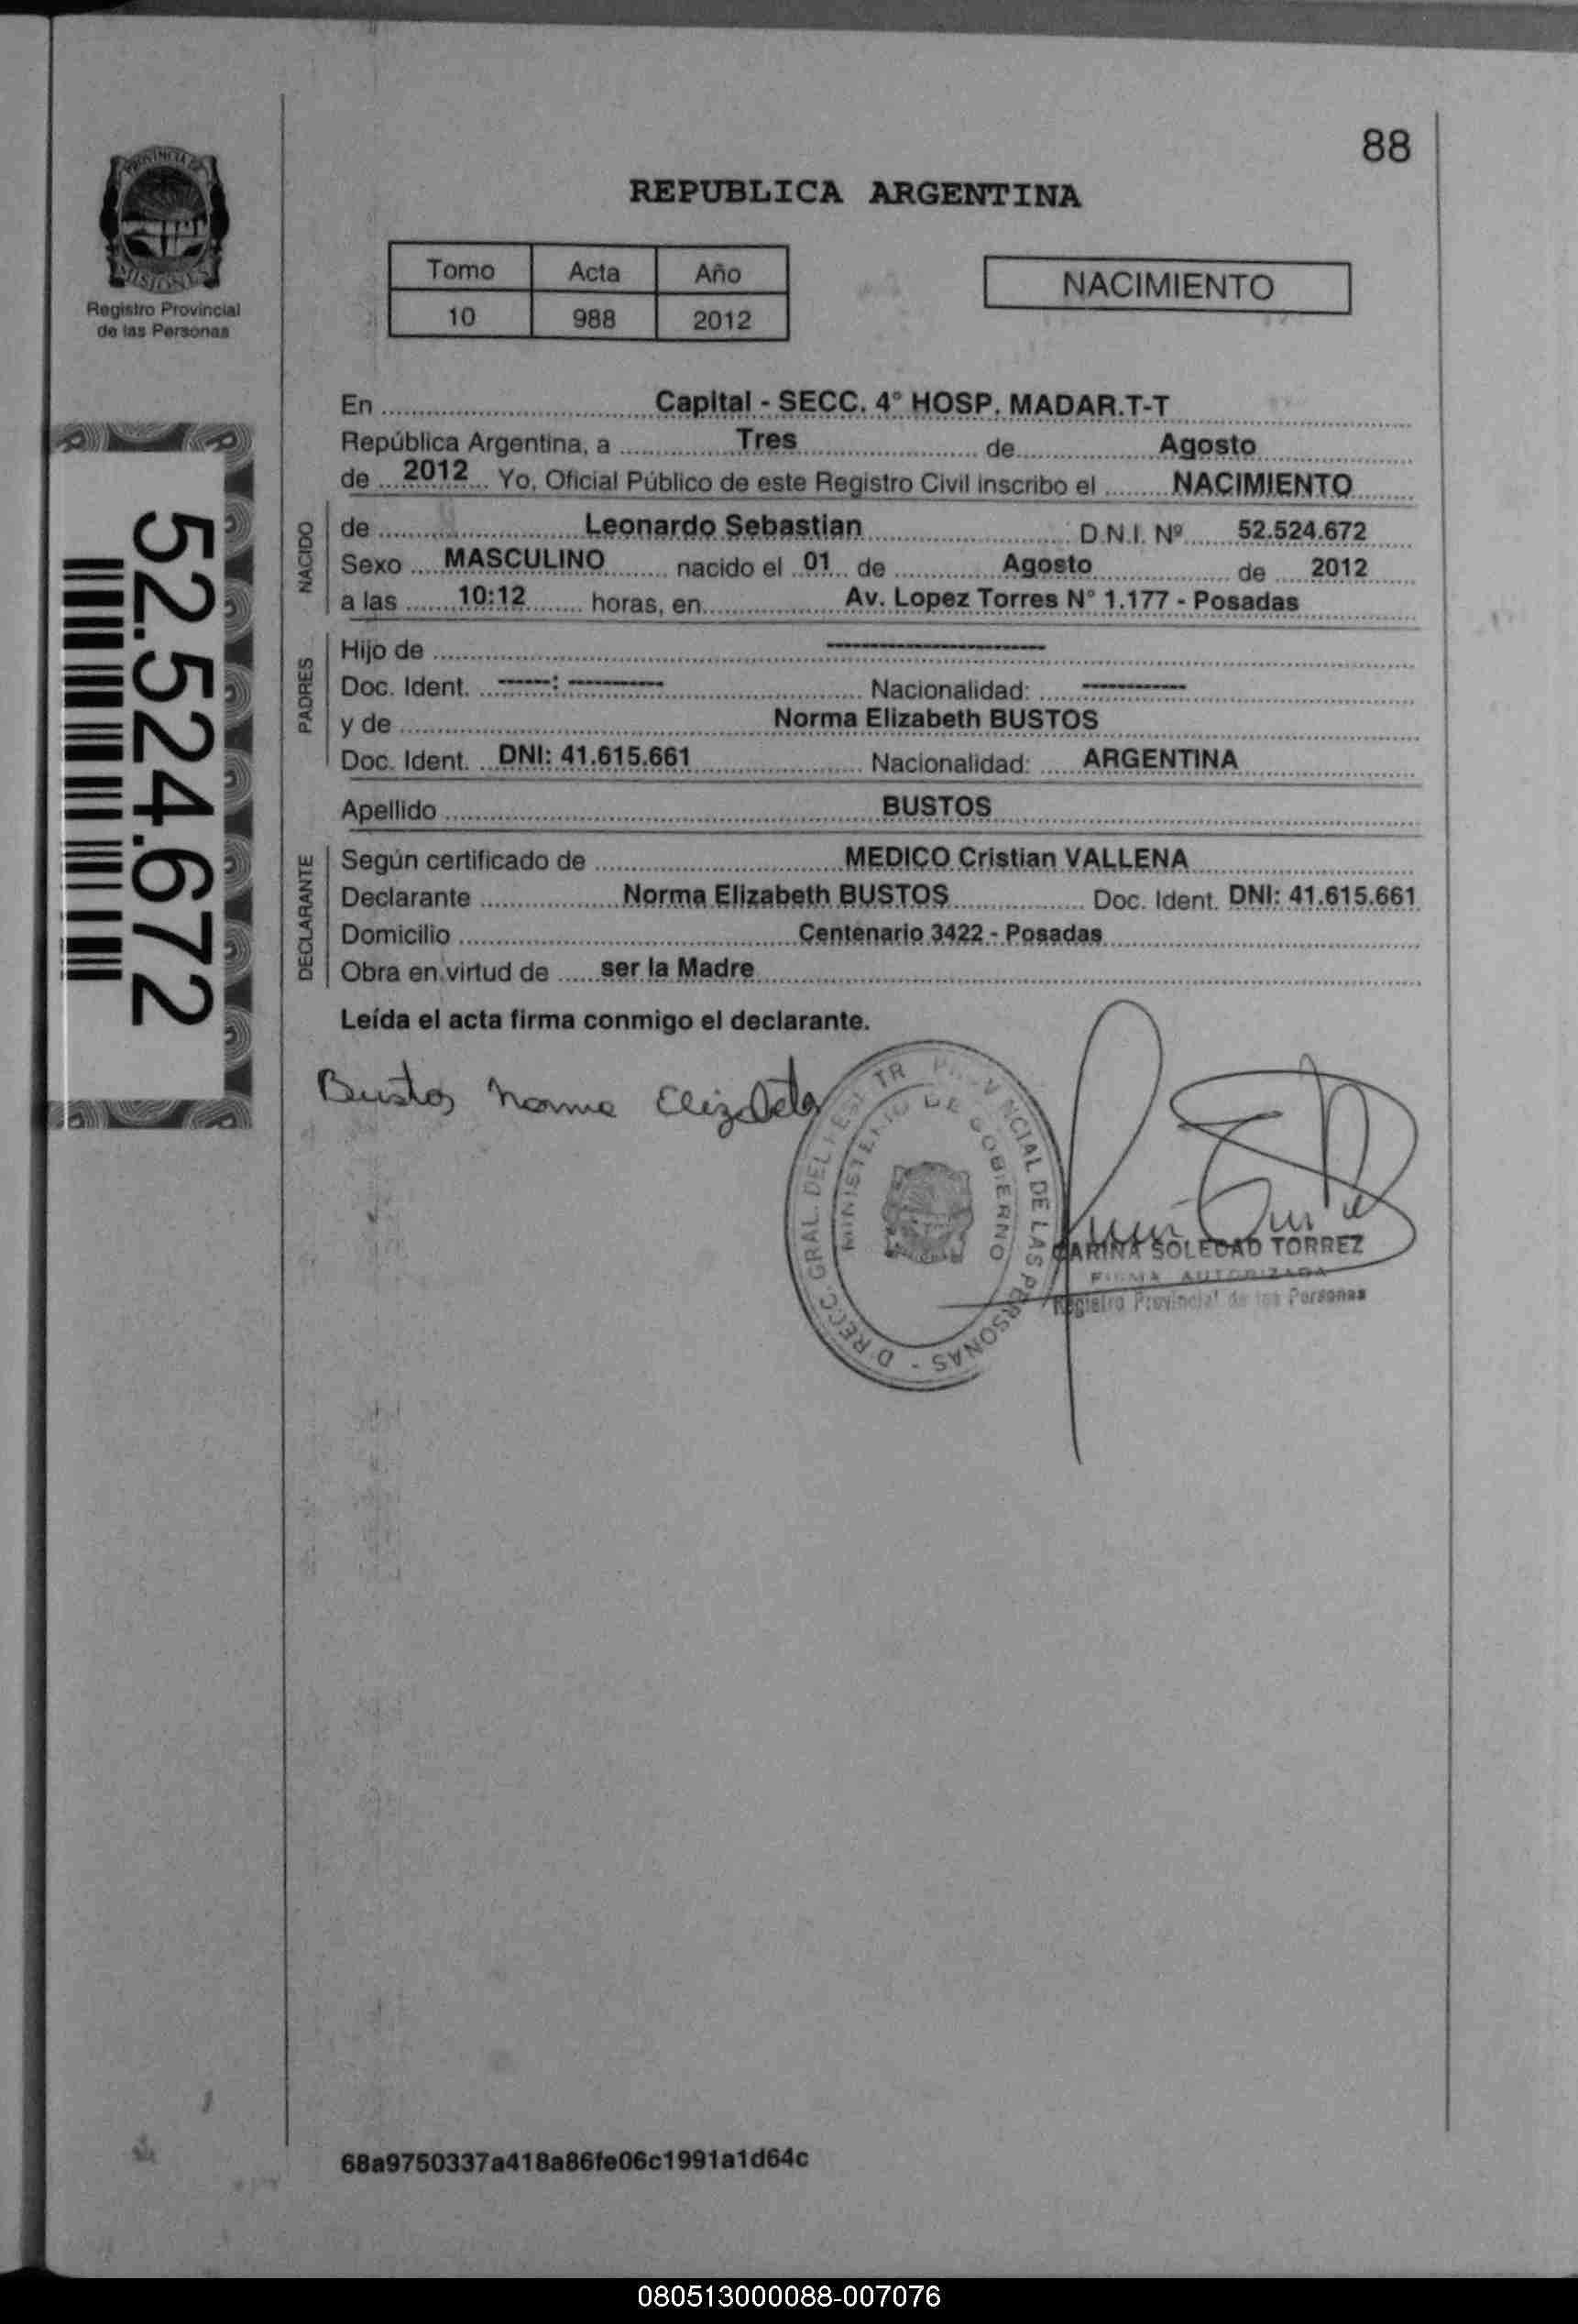 88
PROVINCIA DE
MISIONES
Registro Provincial
de las Personas
REPUBLICA ARGENTINA
Tomo Acta Año
10 988 2012
NACIMIENTO
52.524.672
En Capital - SECC. 4° HOSP. MADAR.T-T
República Argentina, a Tres de Agosto
de 2012 Yo, Oficial Público de este Registro Civil inscribo el NACIMIENTO
NACIDO
de Leonardo Sebastian D.N.I. Nº 52.524.672
Sexo MASCULINO nacido el 01 de Agosto de 2012
a las 10:12 horas, en Av. Lopez Torres N° 1.177 - Posadas
PADRES
Hijo de ----------
Doc. Ident. -----: --------- Nacionalidad: ----------
y de Norma Elizabeth BUSTOS
Doc. Ident. DNI: 41.615.661 Nacionalidad: ARGENTINA
Apellido BUSTOS
DECLARANTE
Según certificado de MEDICO Cristian VALLENA
Declarante Norma Elizabeth BUSTOS Doc. Ident. DNI: 41.615.661
Domicilio Centenario 3422 - Posadas
Obra en virtud de ser la Madre
Leída el acta firma conmigo el declarante.
Bustos Norma Elizabeta
MINISTERIO DE GOBIERNO
PROVINCIAL DE LAS PERSONAS
CARINA SOLEDAD TORREZ
FIRMA AUTORIZADA
Registro Provincial de las Personas
68a9750337a418a86fe06c1991a1d64c
080513000088-007076